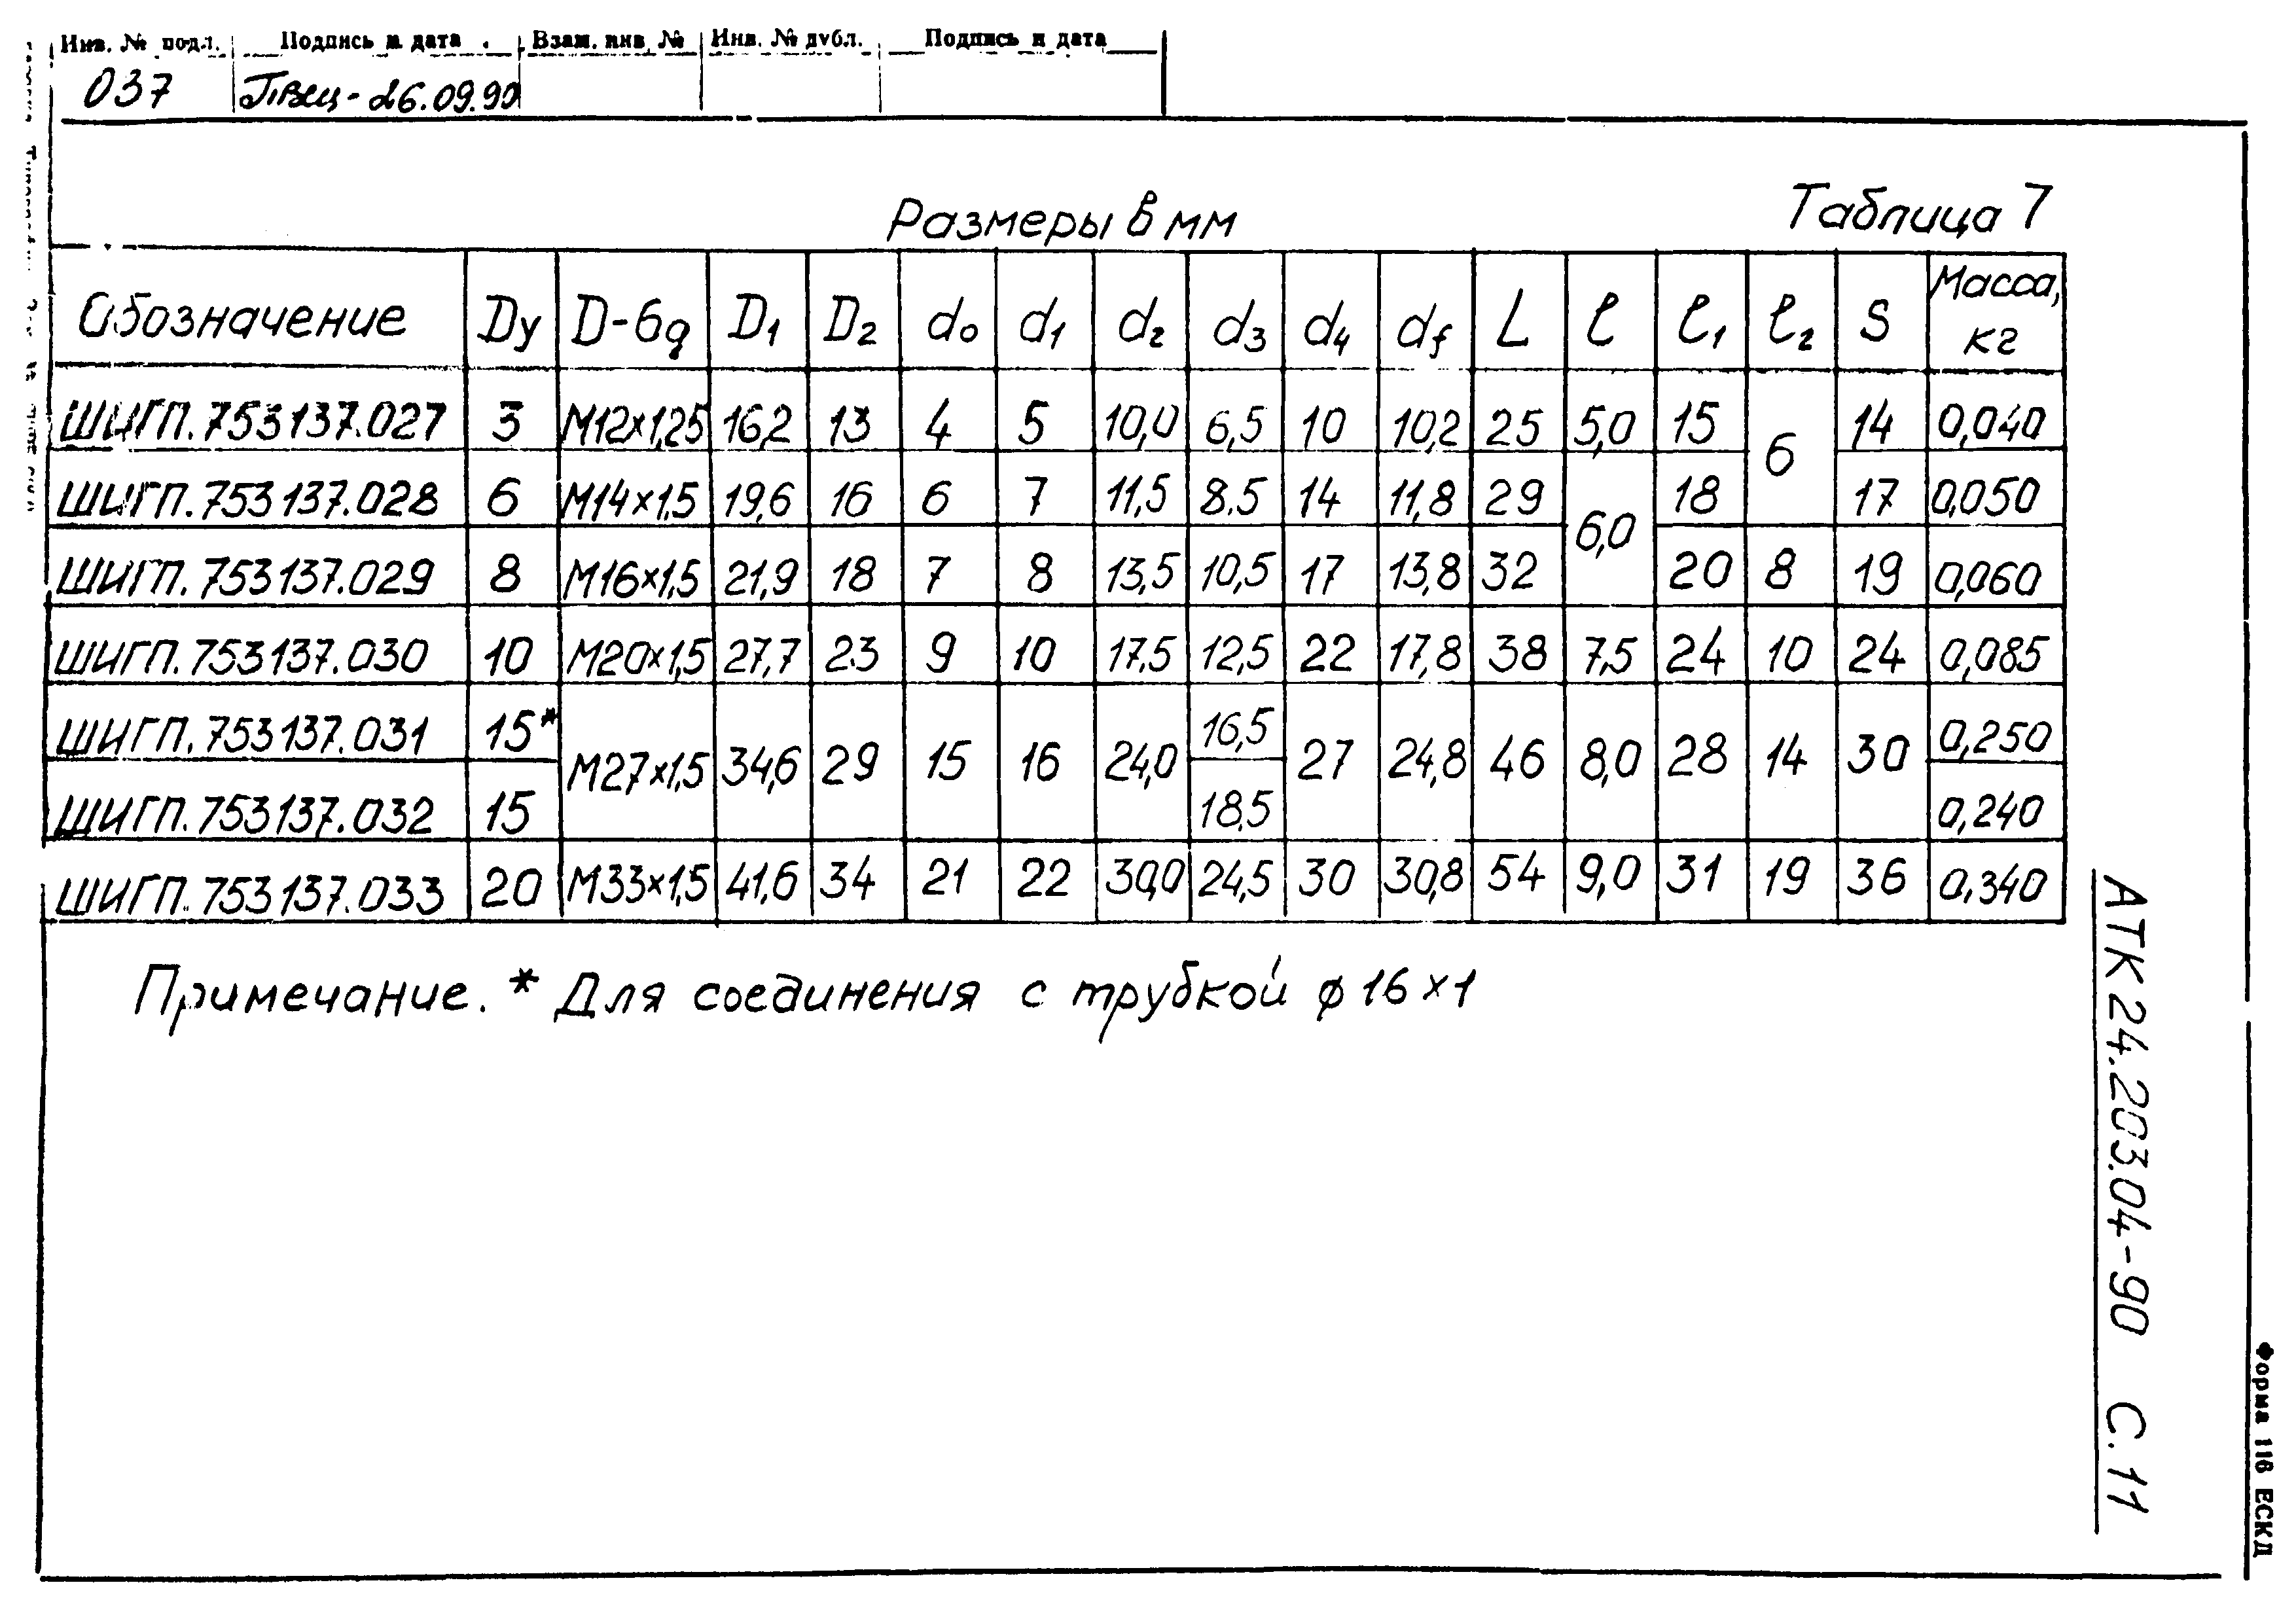 Инв. № подл. Подпись и дата Взам. инв. № Инв. № дубл. Подпись и дата
037 26.09.90
Размеры в мм Таблица 7
Обозначение Dy D-6g D1 D2 d0 d1 d2 d3 d4 df L ℓ ℓ1 ℓ2 S Масса, кг
ШИГП.753137.027 3 М12×1,25 16,2 13 4 5 10,0 6,5 10 10,2 25 5,0 15 6 14 0,040
ШИГП.753137.028 6 М14×1,5 19,6 16 6 7 11,5 8,5 14 11,8 29 6,0 18 17 0,050
ШИГП.753137.029 8 М16×1,5 21,9 18 7 8 13,5 10,5 17 13,8 32 20 8 19 0,060
ШИГП.753137.030 10 М20×1,5 27,7 23 9 10 17,5 12,5 22 17,8 38 7,5 24 10 24 0,085
ШИГП.753137.031 15* М27×1,5 34,6 29 15 16 24,0 16,5 27 24,8 46 8,0 28 14 30 0,250
ШИГП.753137.032 15 18,5 0,240
ШИГП.753137.033 20 М33×1,5 41,6 34 21 22 30,0 24,5 30 30,8 54 9,0 31 19 36 0,340
Примечание. * Для соединения с трубкой ϕ16×1
АТК 24.203.04-90 С.11
Форма 11б ЕСКД